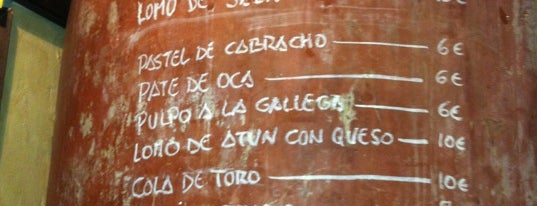 LOMO DE
PASTEL DE CABRACHO — 6€
PATE DE OCA — 6€
PULPO A LA GALLEGA — 6€
LOMO DE ATUN CON QUESO — 10€
COLA DE TORO — 10€